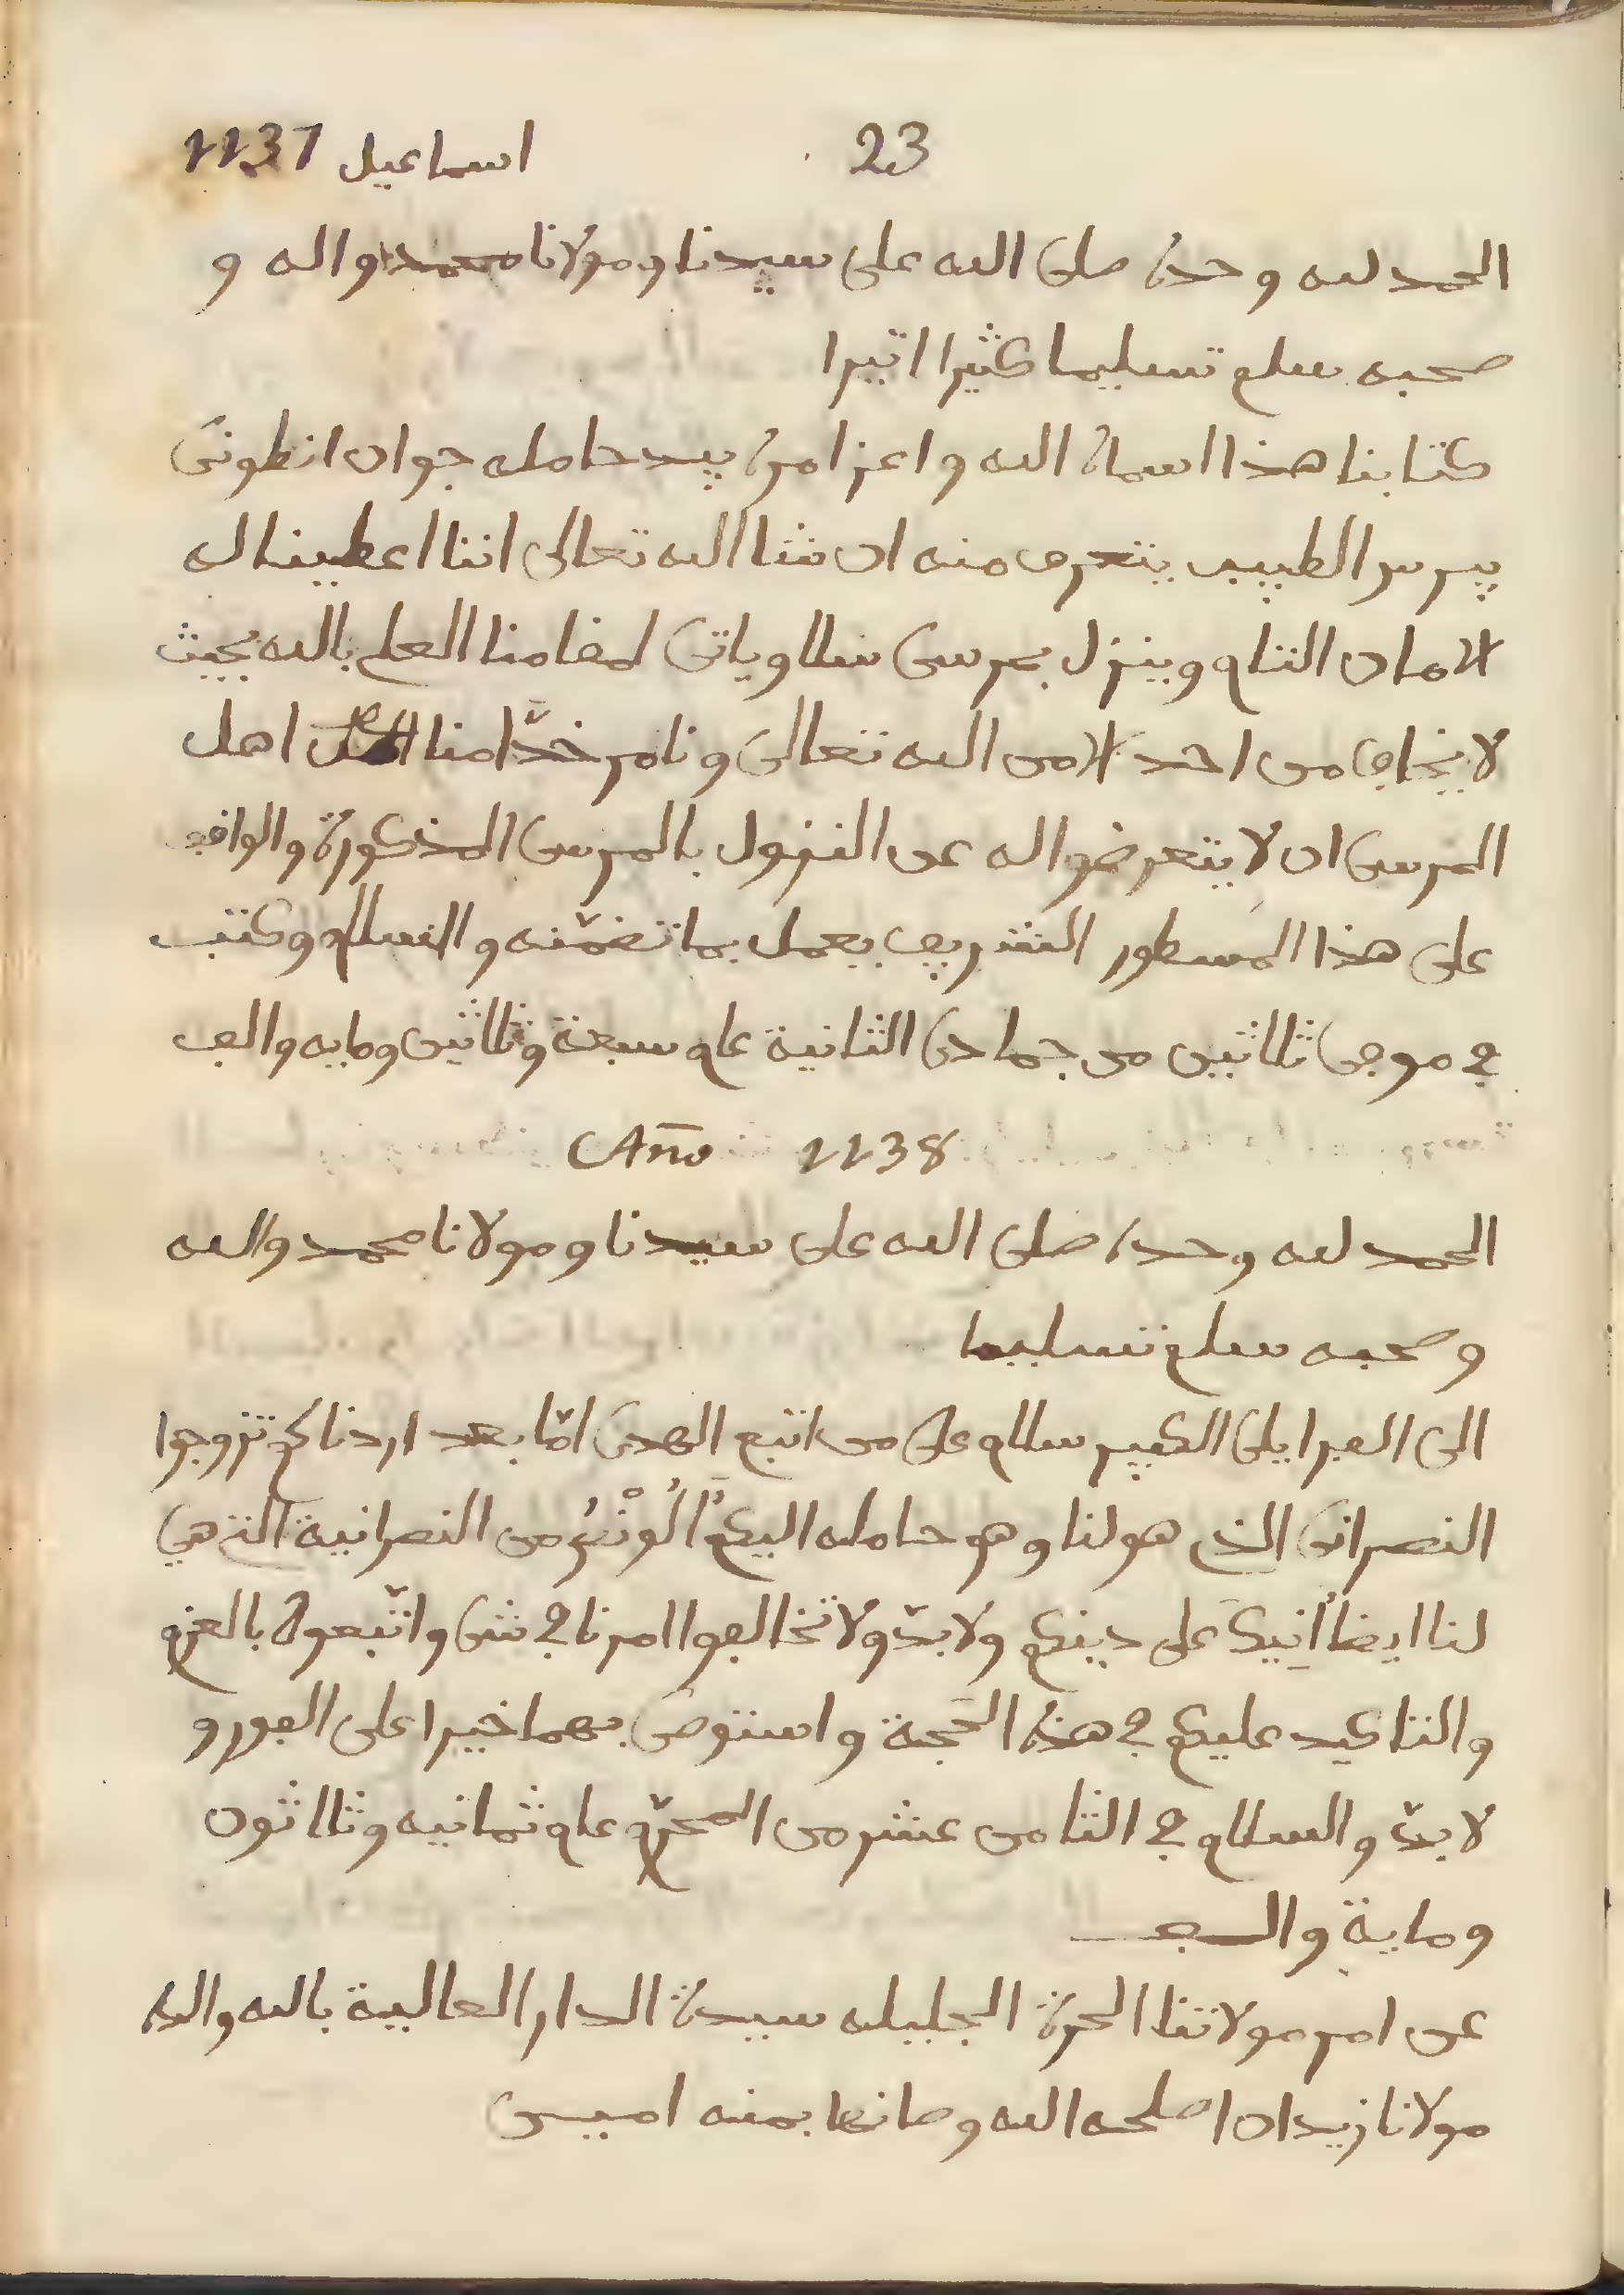 23 اسماعيل 1137
الحمد لله وحده صلى الله على سيدنا ومولانا محمد واله و
صحبه سلم تسليما كثيرا اثيرا
كتابنا هذا اسماه الله واعز امره بيد حامله جوان انطونى
بيرس الطبيب يتعرف منه ان شا الله تعالى اننا اعطينا له
الامان التام وينزل بمرسى سلا وياتى لمقامنا العلى بالله بحيث
لا يخاف من احد الا من الله تعالى ونامر خدّامنا اهل
المرسى ان لا يتعرضوا له عن النزول بالمرسى المذكورة والواقف
على هذا المسطور الشريف يعمل بما تضمّنه والسلام وكتب
في موفى ثلاثين من جمادى الثانية عام سبعة وثلاثين ومايه والف
Año 1138
الحمد لله وحده صلى الله على سيدنا ومولانا محمد واله
وصحبه سلم تسليما
الى الفرايلى الكبير سلام على من اتبع الهدى امّا بعد اردناكم تزوجوا
النصرانى الذي هو لنا وهو حامله اليكم ألُونْسُ من النصرانية التي هي
لنا ايضا أنِيكَ على دينكم ولا بدّ ولا تخالفوا امرنا في شى واتّبعوه بالعزم
والتاكيد عليكم في هذه الحجة واستوصى بهما خيرا على الفور و
لا بدّ والسلام في الثامن عشر من المحرّم عام ثمانيه وثلاثون
وماية والف
عن امر مولاتنا الحرة الجليله سيدة الدار العالية بالله والده
مولانا زيدان اصلحه الله وصانها بمنه امين